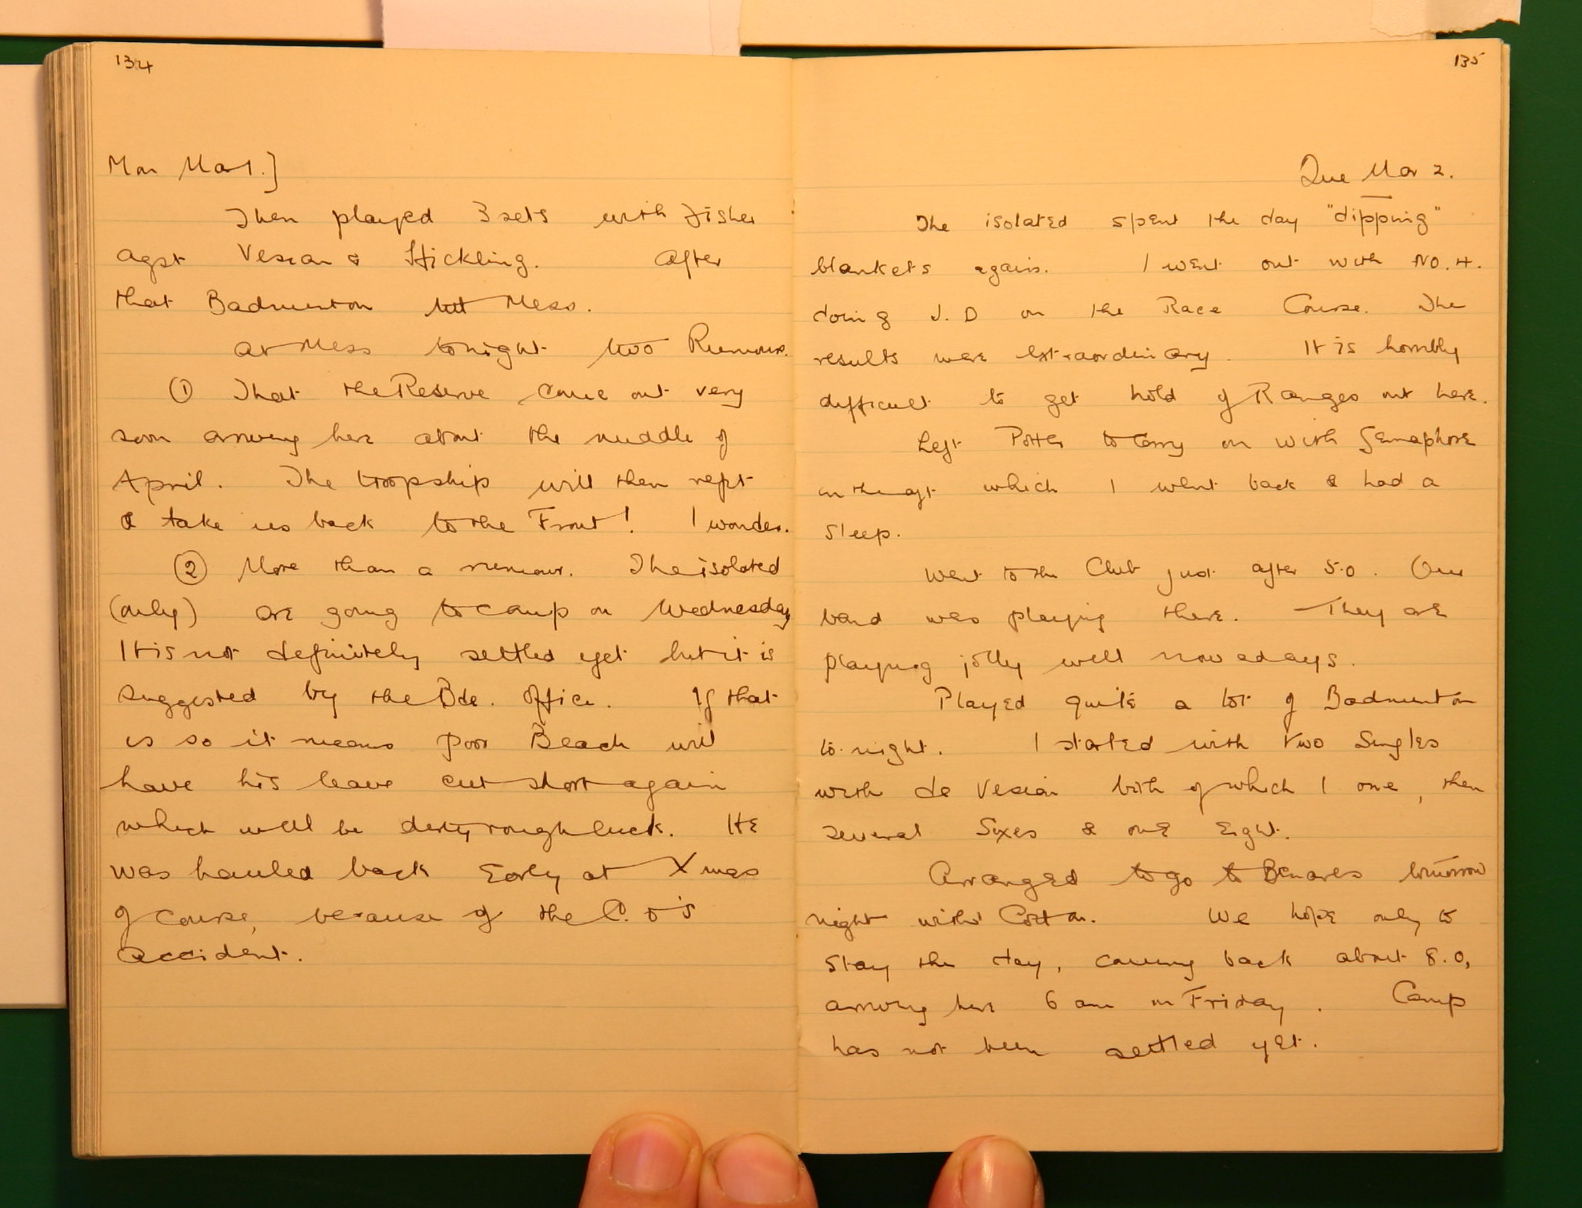 134
Mon Mar 1.]
Then played 3 sets with Fisher
agst Vesian & Hickling. After
that Badminton till Mess.
At Mess tonight two Rumours.
① That the Reserve come out very
soon arriving here about the middle of
April. The troopship will then refit
& take us back to the Front! I wonder.
② More than a rumour. The isolated
(only) are going to camp on Wednesday
It is not definitely settled yet but it is
suggested by the Bde. Office. If that
is so it means poor Beach will
have his leave cut short again
which will be dirty rough luck. He
was hauled back early at Xmas
of course, because of the C.O's
accident.
135
Tue Mar 2.
The isolated spent the day "dipping"
blankets again. I went out with No. 4.
doing J.D on the Race Course. The
results were extraordinary. It is horribly
difficult to get hold of Ranges out here.
Left Potter to carry on with Semaphore
in the aft which I went back & had a
sleep.
Went to the Club just after 5.0. Our
band was playing there. They are
playing jolly well nowadays.
Played quite a lot of Badminton
to-night. I started with two Singles
with de Vesian both of which I one, then
several Sixes & one Eight.
Arranged to go to Benares tomorrow
night with Cotton. We hope only to
stay the day, coming back about 8.0,
arriving here 6 am on Friday. Camp
has not been settled yet.